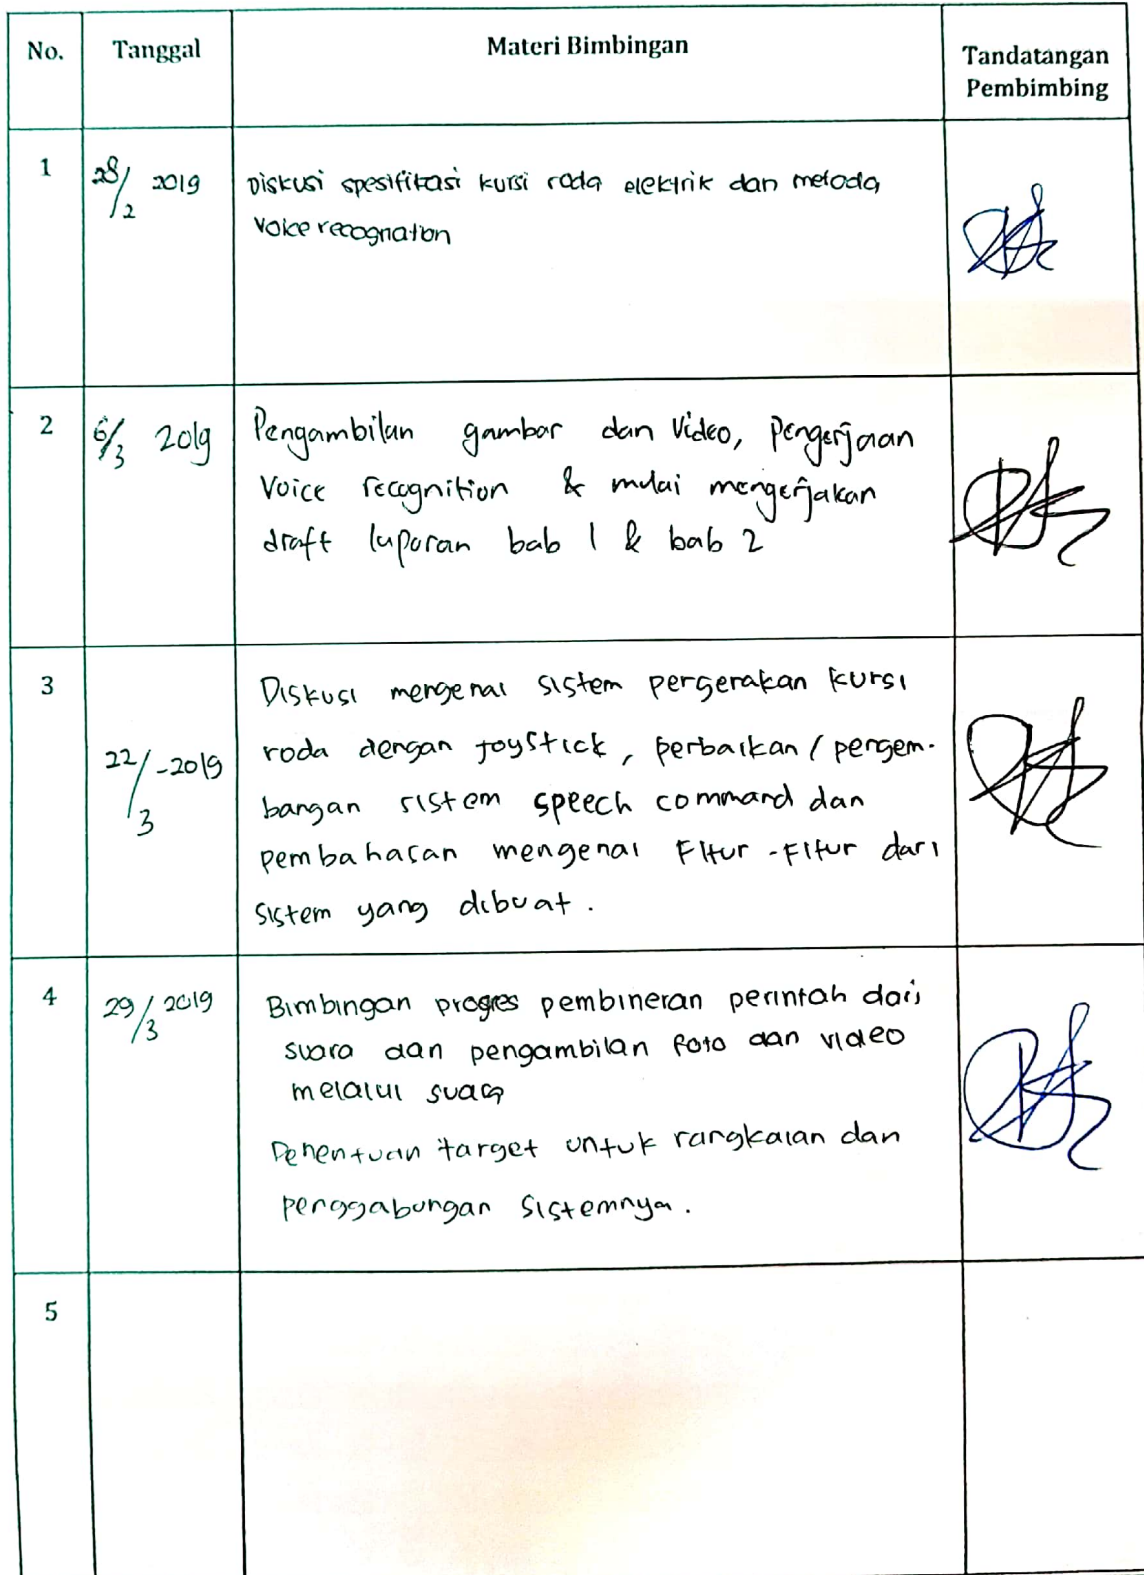 No. Tanggal Materi Bimbingan Tandatangan
Pembimbing
1 28/2 2019 Diskusi spesifikasi kursi roda elektrik dan metoda
Voice recognation
2 6/3 2019 Pengambilan gambar dan Video, pengerjaan
Voice recognition & mulai mengerjakan
draft laporan bab 1 & bab 2
3 Diskusi mengenai sistem pergerakan kursi
22/3 -2019 roda dengan joystick, perbaikan / pengem-
bangan sistem speech command dan
pembahasan mengenai Fitur-Fitur dari
sistem yang dibuat.
4 29/3 2019 Bimbingan progres pembineran perintah dari
suara dan pengambilan foto dan video
melalui suara
Penentuan target untuk rangkaian dan
penggabungan sistemnya.
5